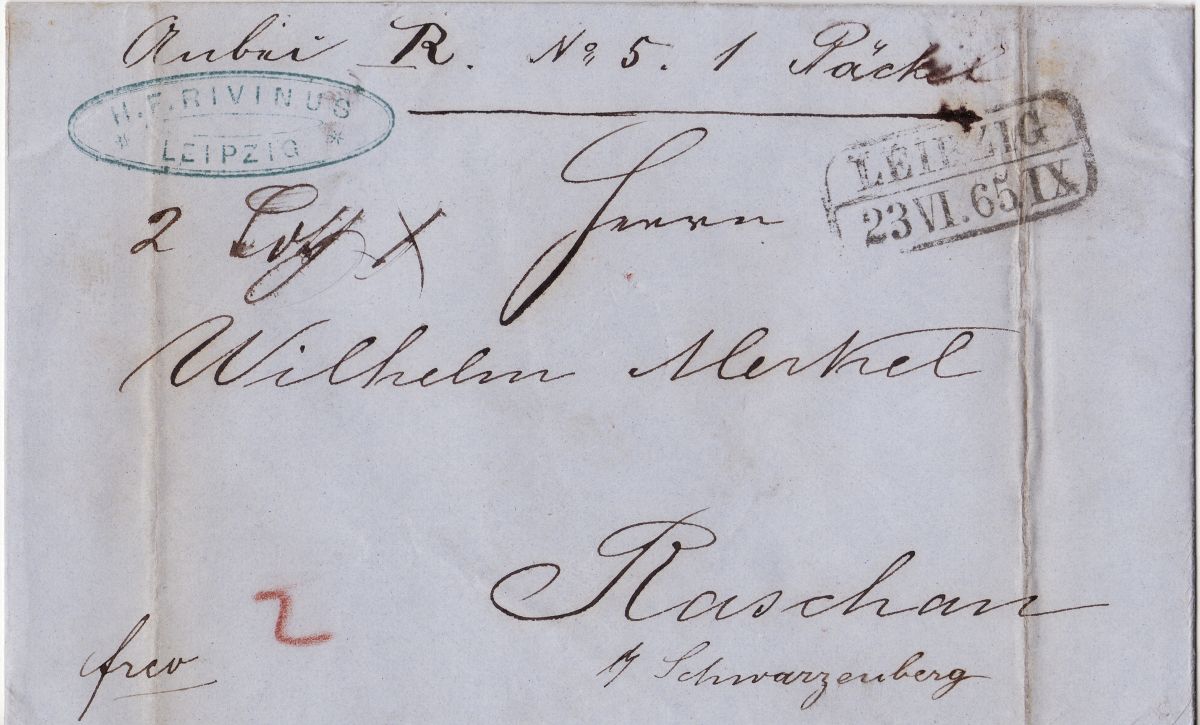 Anbei R. No 5. 1 Päckel
H. F. RIVINUS
LEIPZIG
LEIPZIG
23 VI. 65 IX
2 Loth
Herrn
Wilhelm Merkel
Raschau
2
frco
b/ Schwarzenberg